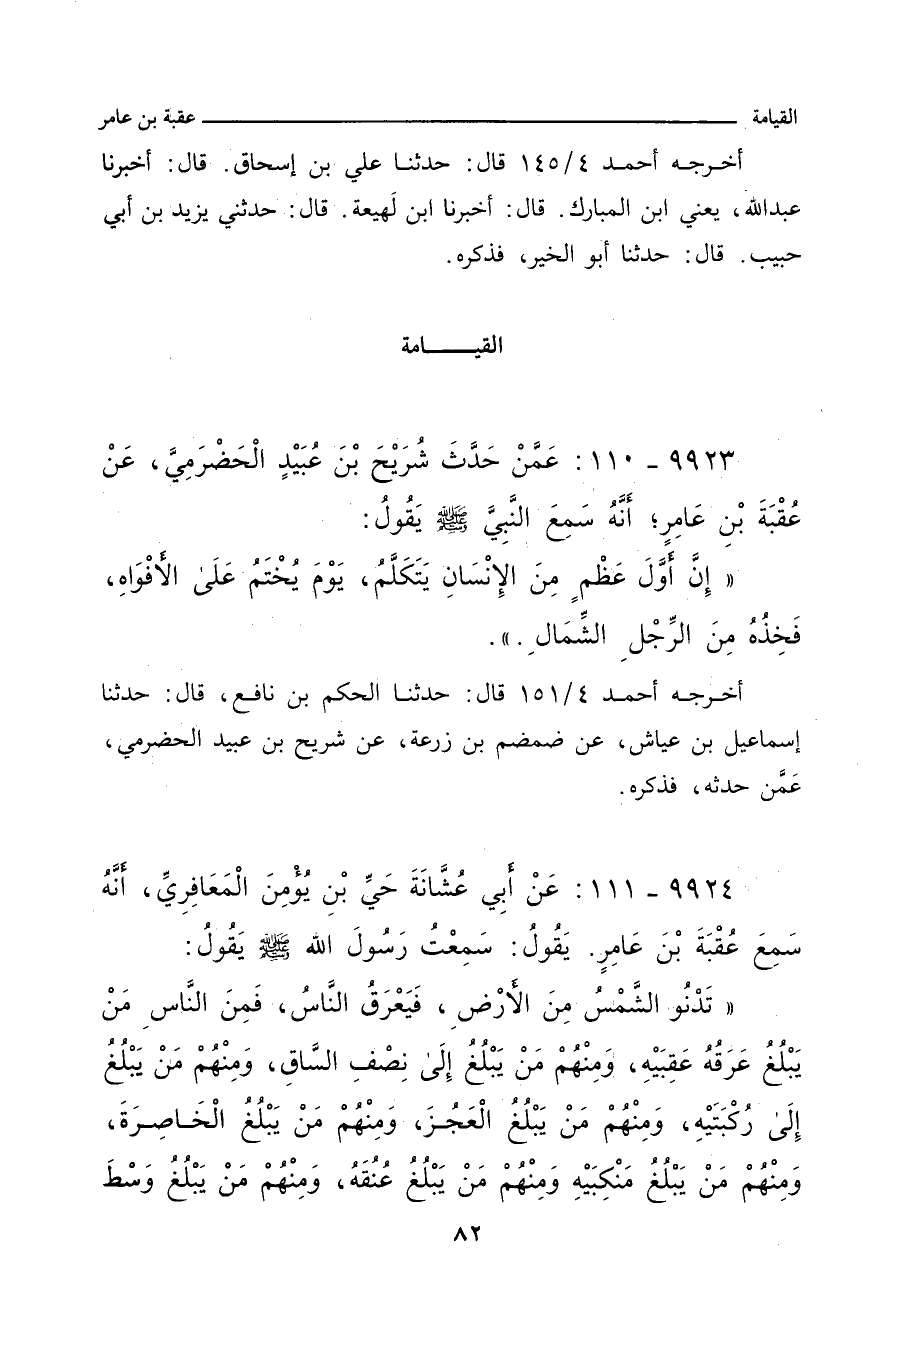 القيامة ـــــــــــــــــــــ عقبة بن عامر
أخرجه أحمد ٤/١٤٥ قال: حدثنا علي بن إسحاق. قال: أخبرنا
عبدالله، يعني ابن المبارك. قال: أخبرنا ابن لَهيعة. قال: حدثني يزيد بن أبي
حبيب. قال: حدثنا أبو الخير، فذكره.
القيـــــامة
٩٩٢٣ - ١١٠: عَمَّنْ حَدَّثَ شُرَيْحَ بْنَ عُبَيْدٍ الْحَضْرَمِيَّ، عَنْ
عُقْبَةَ بْنِ عَامِرٍ؛ أَنَّهُ سَمِعَ النَّبِيَّ ﷺ يَقُولُ:
« إِنَّ أَوَّلَ عَظْمٍ مِنَ الإِنْسَانِ يَتَكَلَّمُ، يَوْمَ يُخْتَمُ عَلَىٰ الأَفْوَاهِ،
فَخِذُهُ مِنَ الرِّجْلِ الشِّمَالِ.».
أخرجه أحمد ٤/١٥١ قال: حدثنا الحكم بن نافع، قال: حدثنا
إسماعيل بن عياش، عن ضمضم بن زرعة، عن شريح بن عبيد الحضرمي،
عَمَّن حدثه، فذكره.
٩٩٢٤ - ١١١: عَنْ أَبِي عُشَّانَةَ حَيِّ بْنِ يُؤْمِنَ الْمَعَافِرِيِّ، أَنَّهُ
سَمِعَ عُقْبَةَ بْنَ عَامِرٍ. يَقُولُ: سَمِعْتُ رَسُولَ الله ﷺ يَقُولُ:
« تَدْنُو الشَّمْسُ مِنَ الأَرْضِ، فَيَعْرَقُ النَّاسُ، فَمِنَ النَّاسِ مَنْ
يَبْلُغُ عَرَقُهُ عَقِبَيْهِ، وَمِنْهُمْ مَنْ يَبْلُغُ إِلَىٰ نِصْفِ السَّاقِ، وَمِنْهُمْ مَنْ يَبْلُغُ
إِلَىٰ رُكْبَتَيْهِ، وَمِنْهُمْ مَنْ يَبْلُغُ الْعَجُزَ، وَمِنْهُمْ مَنْ يَبْلُغُ الْخَاصِرَةَ،
وَمِنْهُمْ مَنْ يَبْلُغُ مَنْكِبَيْهِ وَمِنْهُمْ مَنْ يَبْلُغُ عُنُقَهُ، وَمِنْهُمْ مَنْ يَبْلُغُ وَسْطَ
٨٢